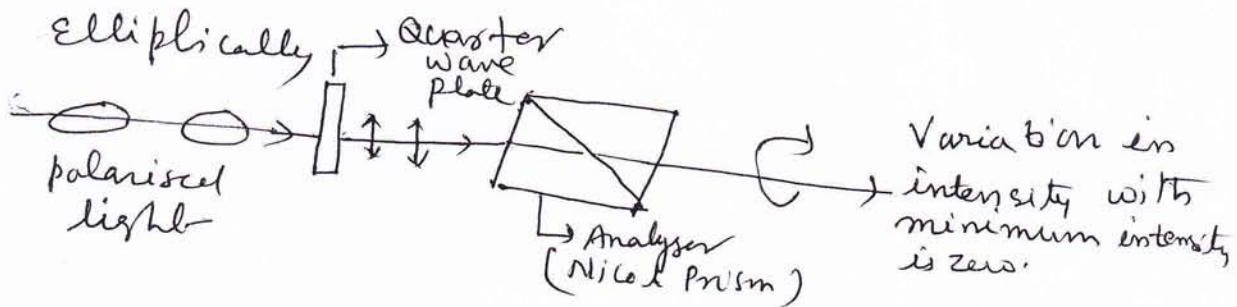 Elliptically
polarised
light
Quarter
wave
plate
Analyser
(Nicol Prism)
Variation in
intensity with
minimum intensity
is zero.